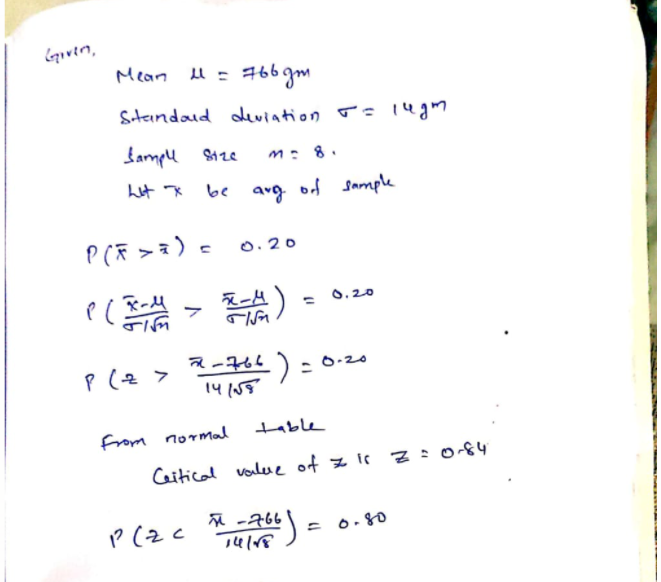 Given,
Mean μ = 766gm
Standard deviation σ = 14gm
Sample size n = 8.
Let x be avg of sample
P(x̄ > x̄) = 0.20
P( (x̄-μ)/(σ/√n) > (x̄-μ)/(σ/√n) ) = 0.20
P(z > (x̄-766)/(14/√8)) = 0.20
from normal table
Critical value of z is z = 0.84
P(z < (x̄-766)/(14/√8)) = 0.80